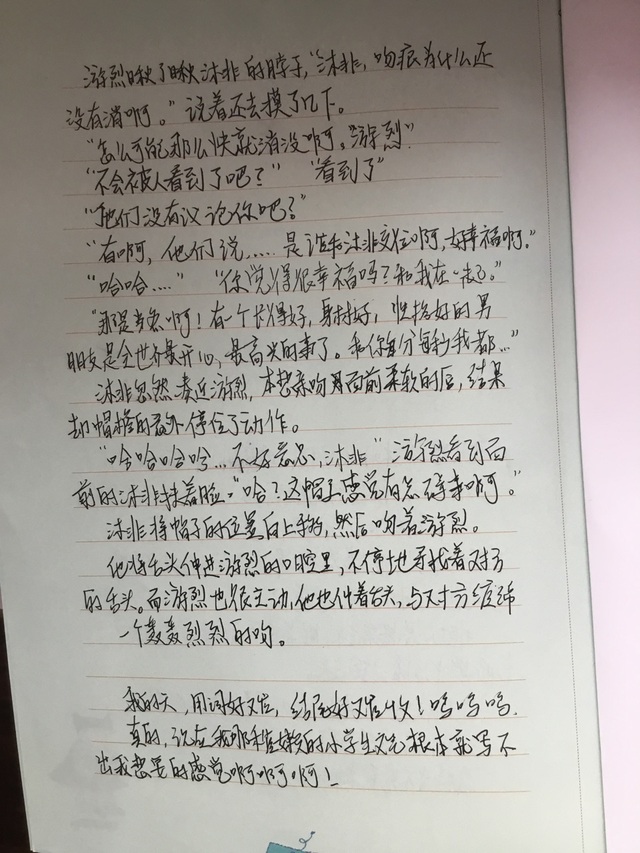 游烈瞅了瞅沐非的脖子，“沐非，吻痕为什么还
没有消啊。”说着还去摸了几下。
“怎么可能那么快就消没啊。游烈”
“不会被人看到了吧？” “看到了”
“他们没有议论你吧？”
“有啊，他们说……是谁和沐非交往啊，好幸福啊。”
“哈哈……” “你觉得很幸福吗？和我在一起。”
“那是当然啊！有一个长得好，身材好，性格好的男
朋友是全世界最开心，最高兴的事了。和你每分每秒我都…”
沐非忽然凑近游烈，本想亲吻男面前柔软的唇，结果
却帽檐的意外停住了动作。
“哈哈哈哈…不好意思，沐非”游烈看到面
前的沐非扶着脸。“哈？这帽子感觉有点碍事啊。”
沐非将帽子的位置向上移，然后吻着游烈。
他将舌头伸进游烈的口腔里，不停地寻找着对方
的舌头。而游烈也很主动，他也伸着舌头，与对方缠绵
一个轰轰烈烈的吻。
我的天，用词好难，结尾好难收！呜呜呜
真的，说在我那稚嫩的小学生文笔根本就写不
出我想要的感觉啊啊啊！